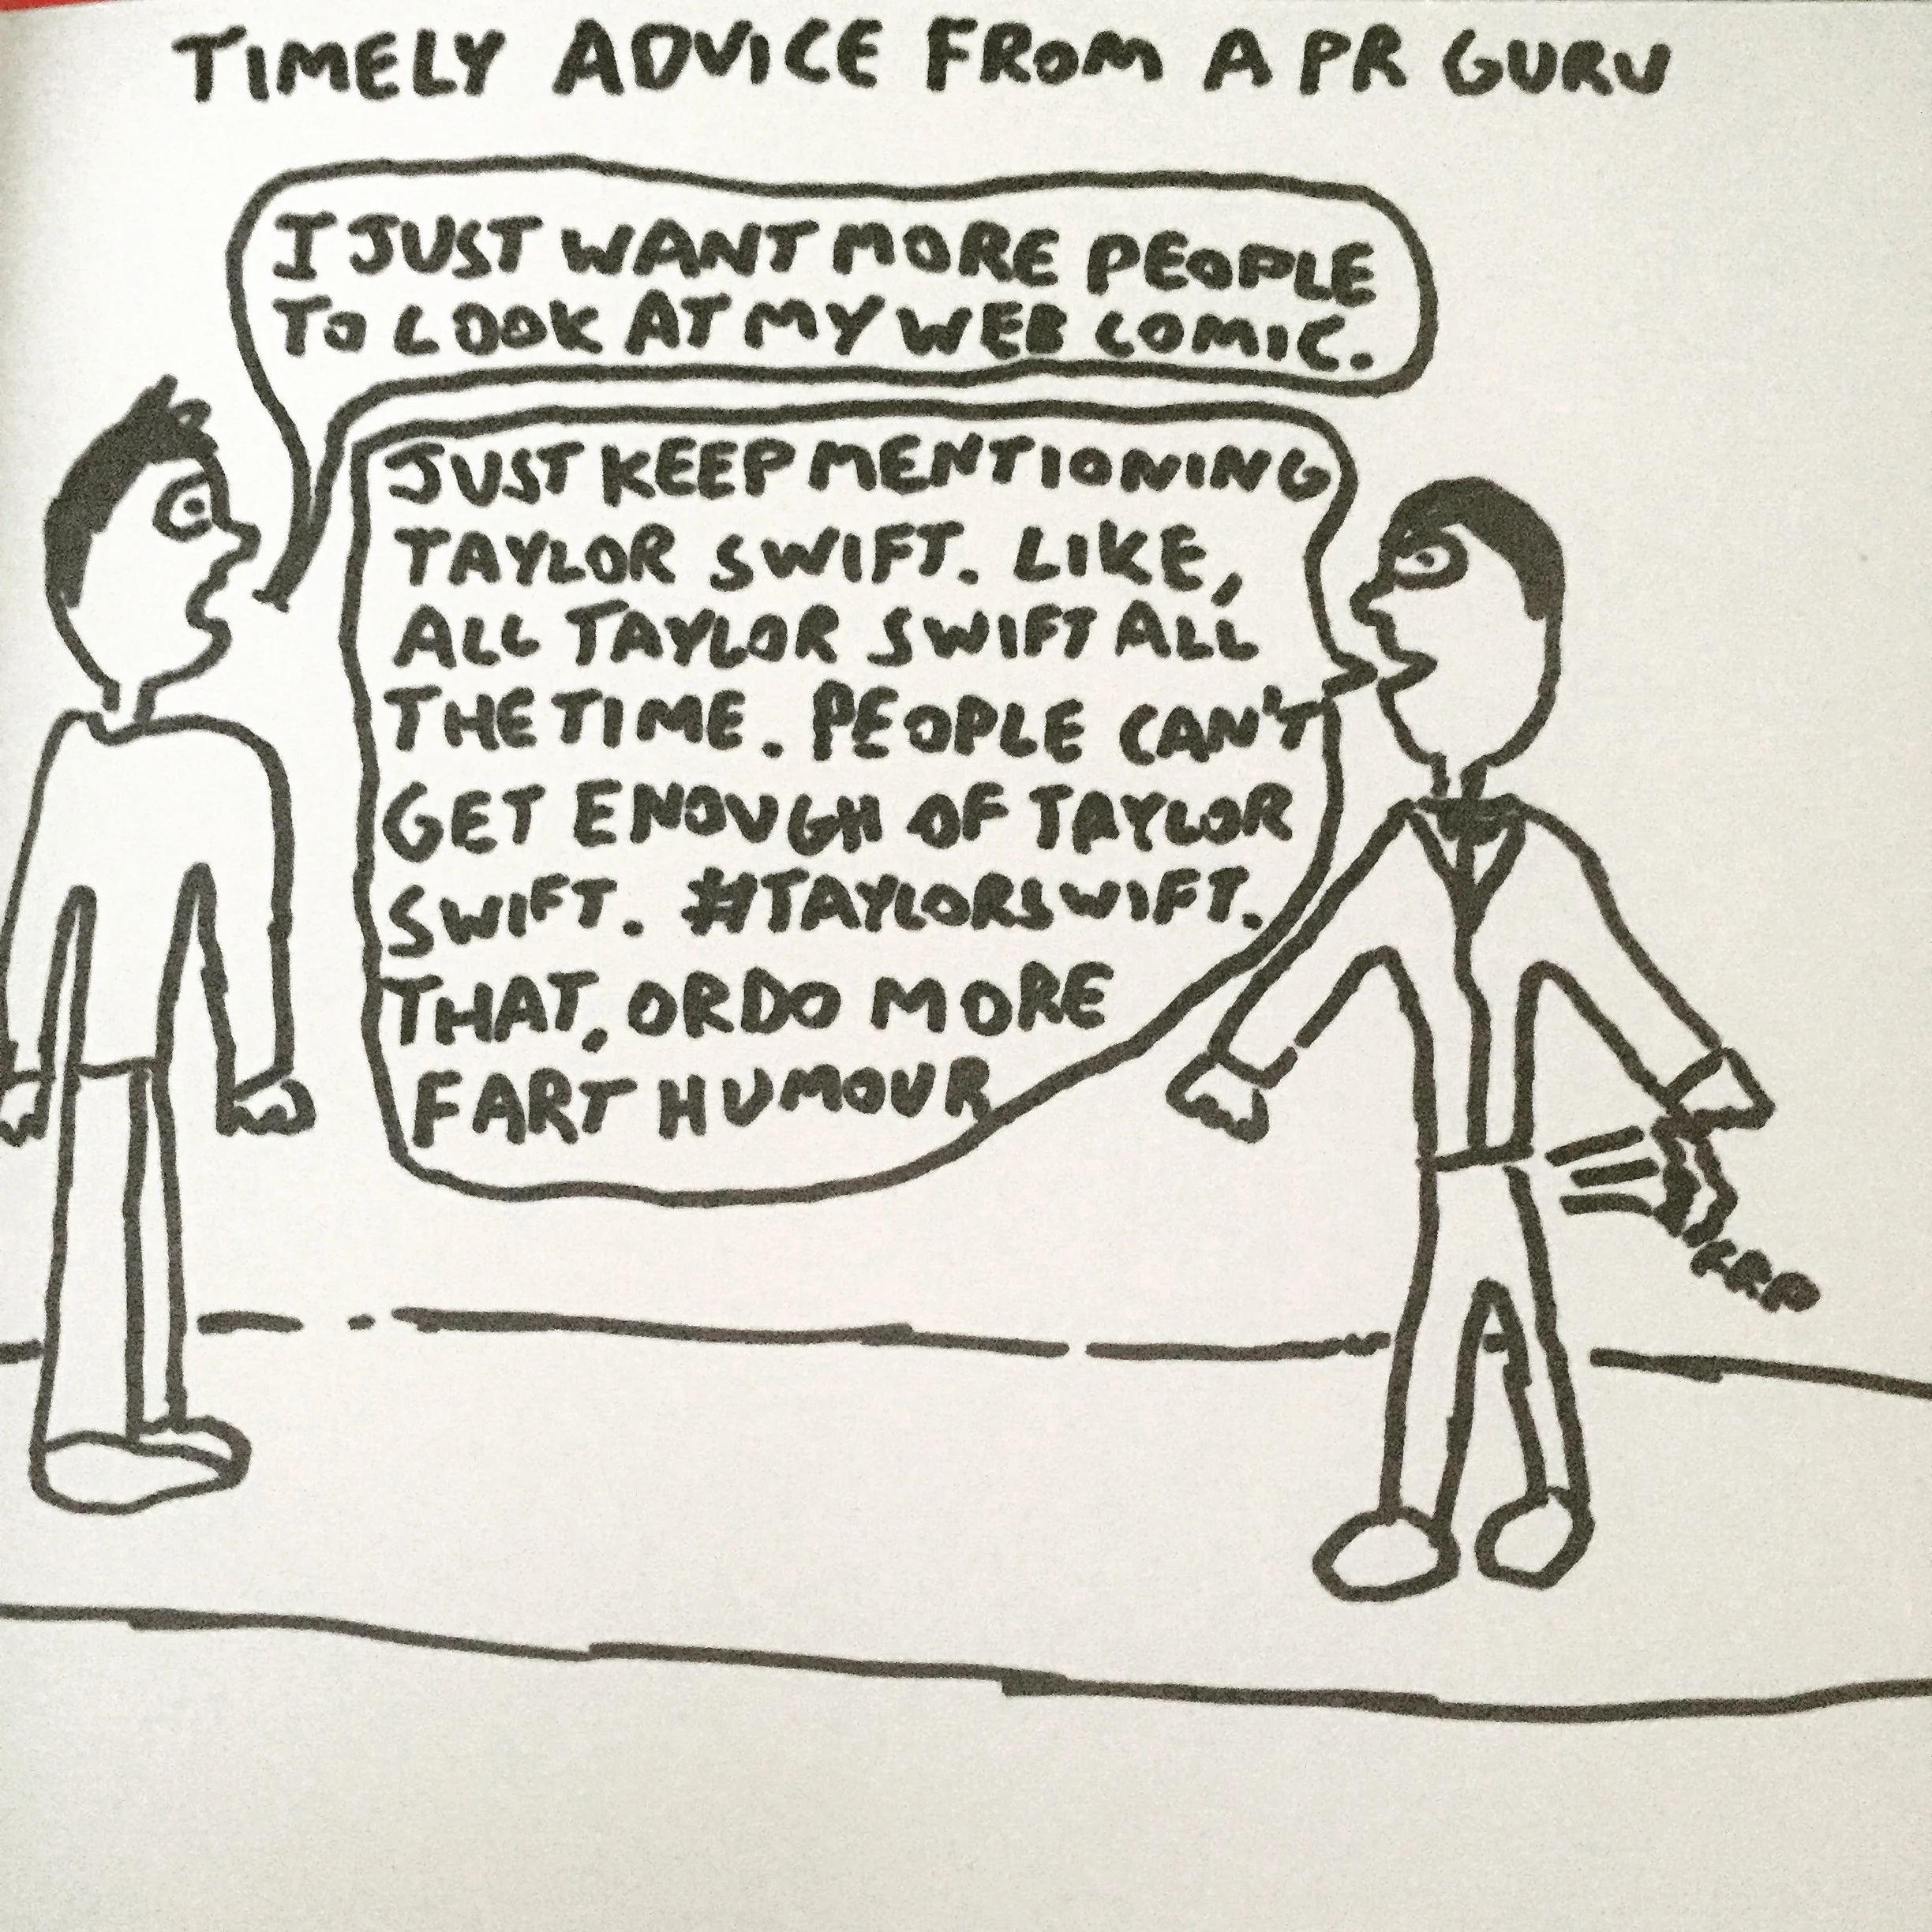 TIMELY ADVICE FROM A PR GURU
I JUST WANT MORE PEOPLE
TO LOOK AT MY WEB COMIC.
JUST KEEP MENTIONING
TAYLOR SWIFT. LIKE,
ALL TAYLOR SWIFT ALL
THE TIME. PEOPLE CAN'T
GET ENOUGH OF TAYLOR
SWIFT. #TAYLORSWIFT.
THAT, OR DO MORE
FART HUMOUR